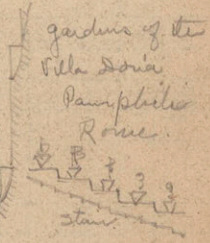 gardens of the
Villa Doria
Pamphili
Rome.
stair